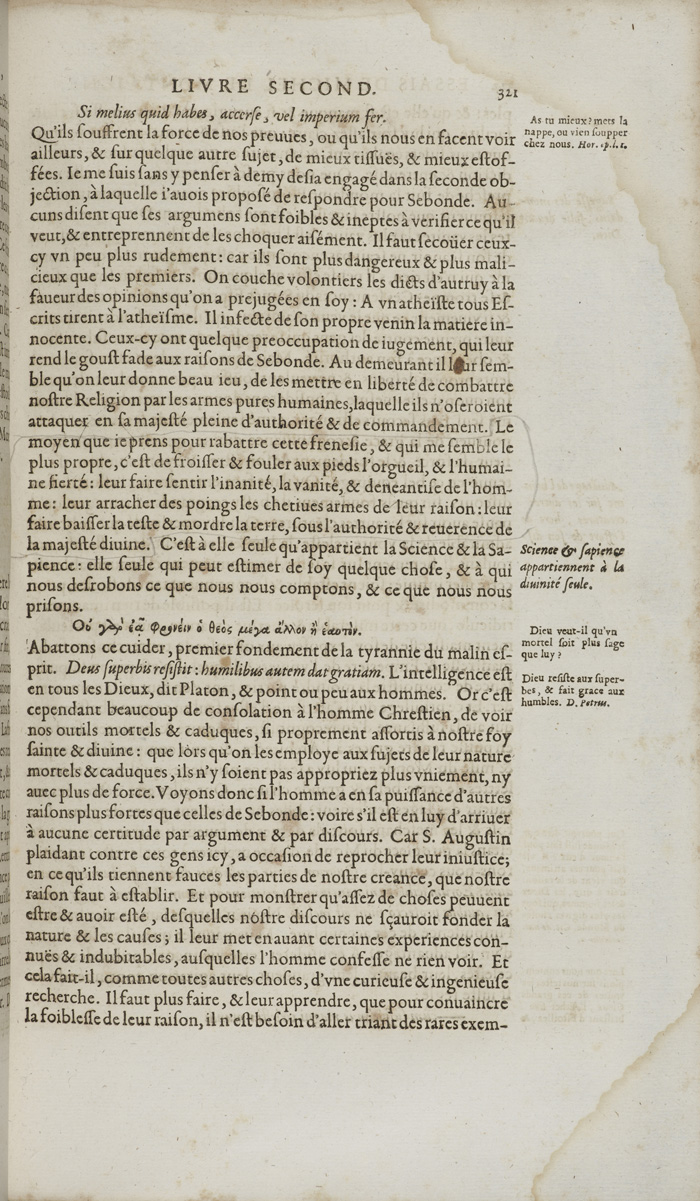 LIVRE SECOND.
321
Si melius quid habes, accerse, vel imperium fer.
Qu'ils souffrent la force de nos preuues, ou qu'ils nous en facent voir
ailleurs, & sur quelque autre sujet, de mieux tissuës, & mieux estof-
fées. Ie me suis sans y penser à demy desia engagé dans la seconde ob-
jection, à laquelle i'auois proposé de respondre pour Sebonde. Au-
cuns disent que ses argumens sont foibles & ineptes à verifier ce qu'il
veut, & entreprennent de les choquer aisément. Il faut secoüer ceux-
cy vn peu plus rudement: car ils sont plus dangereux & plus mali-
cieux que les premiers. On couche volontiers les dicts d'autruy à la
faueur des opinions qu'on a prejugées en soy: A vn atheïste tous Es-
crits tirent à l'atheïsme. Il infecte de son propre venin la matiere in-
nocente. Ceux-cy ont quelque preoccupation de iugement, qui leur
rend le goust fade aux raisons de Sebonde. Au demeurant il leur sem-
ble qu'on leur donne beau ieu, de les mettre en liberté de combattre
nostre Religion par les armes pures humaines, laquelle ils n'oseroient
attaquer en sa majesté pleine d'authorité & de commandement. Le
moyen que ie prens pour rabattre cette frenesie, & qui me semble le
plus propre, c'est de froisser & fouler aux pieds l'orgueil, & l'humai-
ne fierté: leur faire sentir l'inanité, la vanité, & deneantise de l'hom-
me: leur arracher des poings les chetiues armes de leur raison: leur
faire baisser la teste & mordre la terre, sous l'authorité & reuerence de
la majesté diuine. C'est à elle seule qu'appartient la Science & la Sa-
pience: elle seule qui peut estimer de soy quelque chose, & à qui
nous desrobons ce que nous nous comptons, & ce que nous nous
prisons.
Οὐ γὰρ ἐᾷ φρονεῖν ὁ θεὸς μέγα ἄλλον ἢ ἑαυτόν.
Abattons ce cuider, premier fondement de la tyrannie du malin es-
prit. Deus superbis resistit: humilibus autem dat gratiam. L'intelligence est
en tous les Dieux, dit Platon, & point ou peu aux hommes. Or c'est
cependant beaucoup de consolation à l'homme Chrestien, de voir
nos outils mortels & caduques, si proprement assortis à nostre foy
sainte & diuine: que lors qu'on les employe aux sujets de leur nature
mortels & caduques, ils n'y soient pas appropriez plus vniement, ny
auec plus de force. Voyons donc si l'homme a en sa puissance d'autres
raisons plus fortes que celles de Sebonde: voire s'il est en luy d'arriuer
à aucune certitude par argument & par discours. Car S. Augustin
plaidant contre ces gens icy, a occasion de reprocher leur iniustice;
en ce qu'ils tiennent fauces les parties de nostre creance, que nostre
raison faut à establir. Et pour monstrer qu'assez de choses peuuent
estre & auoir esté, desquelles nostre discours ne sçauroit fonder la
nature & les causes; il leur met en auant certaines experiences con-
nuës & indubitables, ausquelles l'homme confesse ne rien voir. Et
cela fait-il, comme toutes autres choses, d'vne curieuse & ingenieuse
recherche. Il faut plus faire, & leur apprendre, que pour conuaincre
la foiblesse de leur raison, il n'est besoin d'aller triant des rares exem-
As tu mieux? mets la
nappe, ou vien soupper
chez nous. Hor. ep. l. 1.
Science & sapience
appartiennent à la
diuinité seule.
Dieu veut-il qu'vn
mortel soit plus sage
que luy?
Dieu resiste aux super-
bes, & fait grace aux
humbles. D. Petrus.